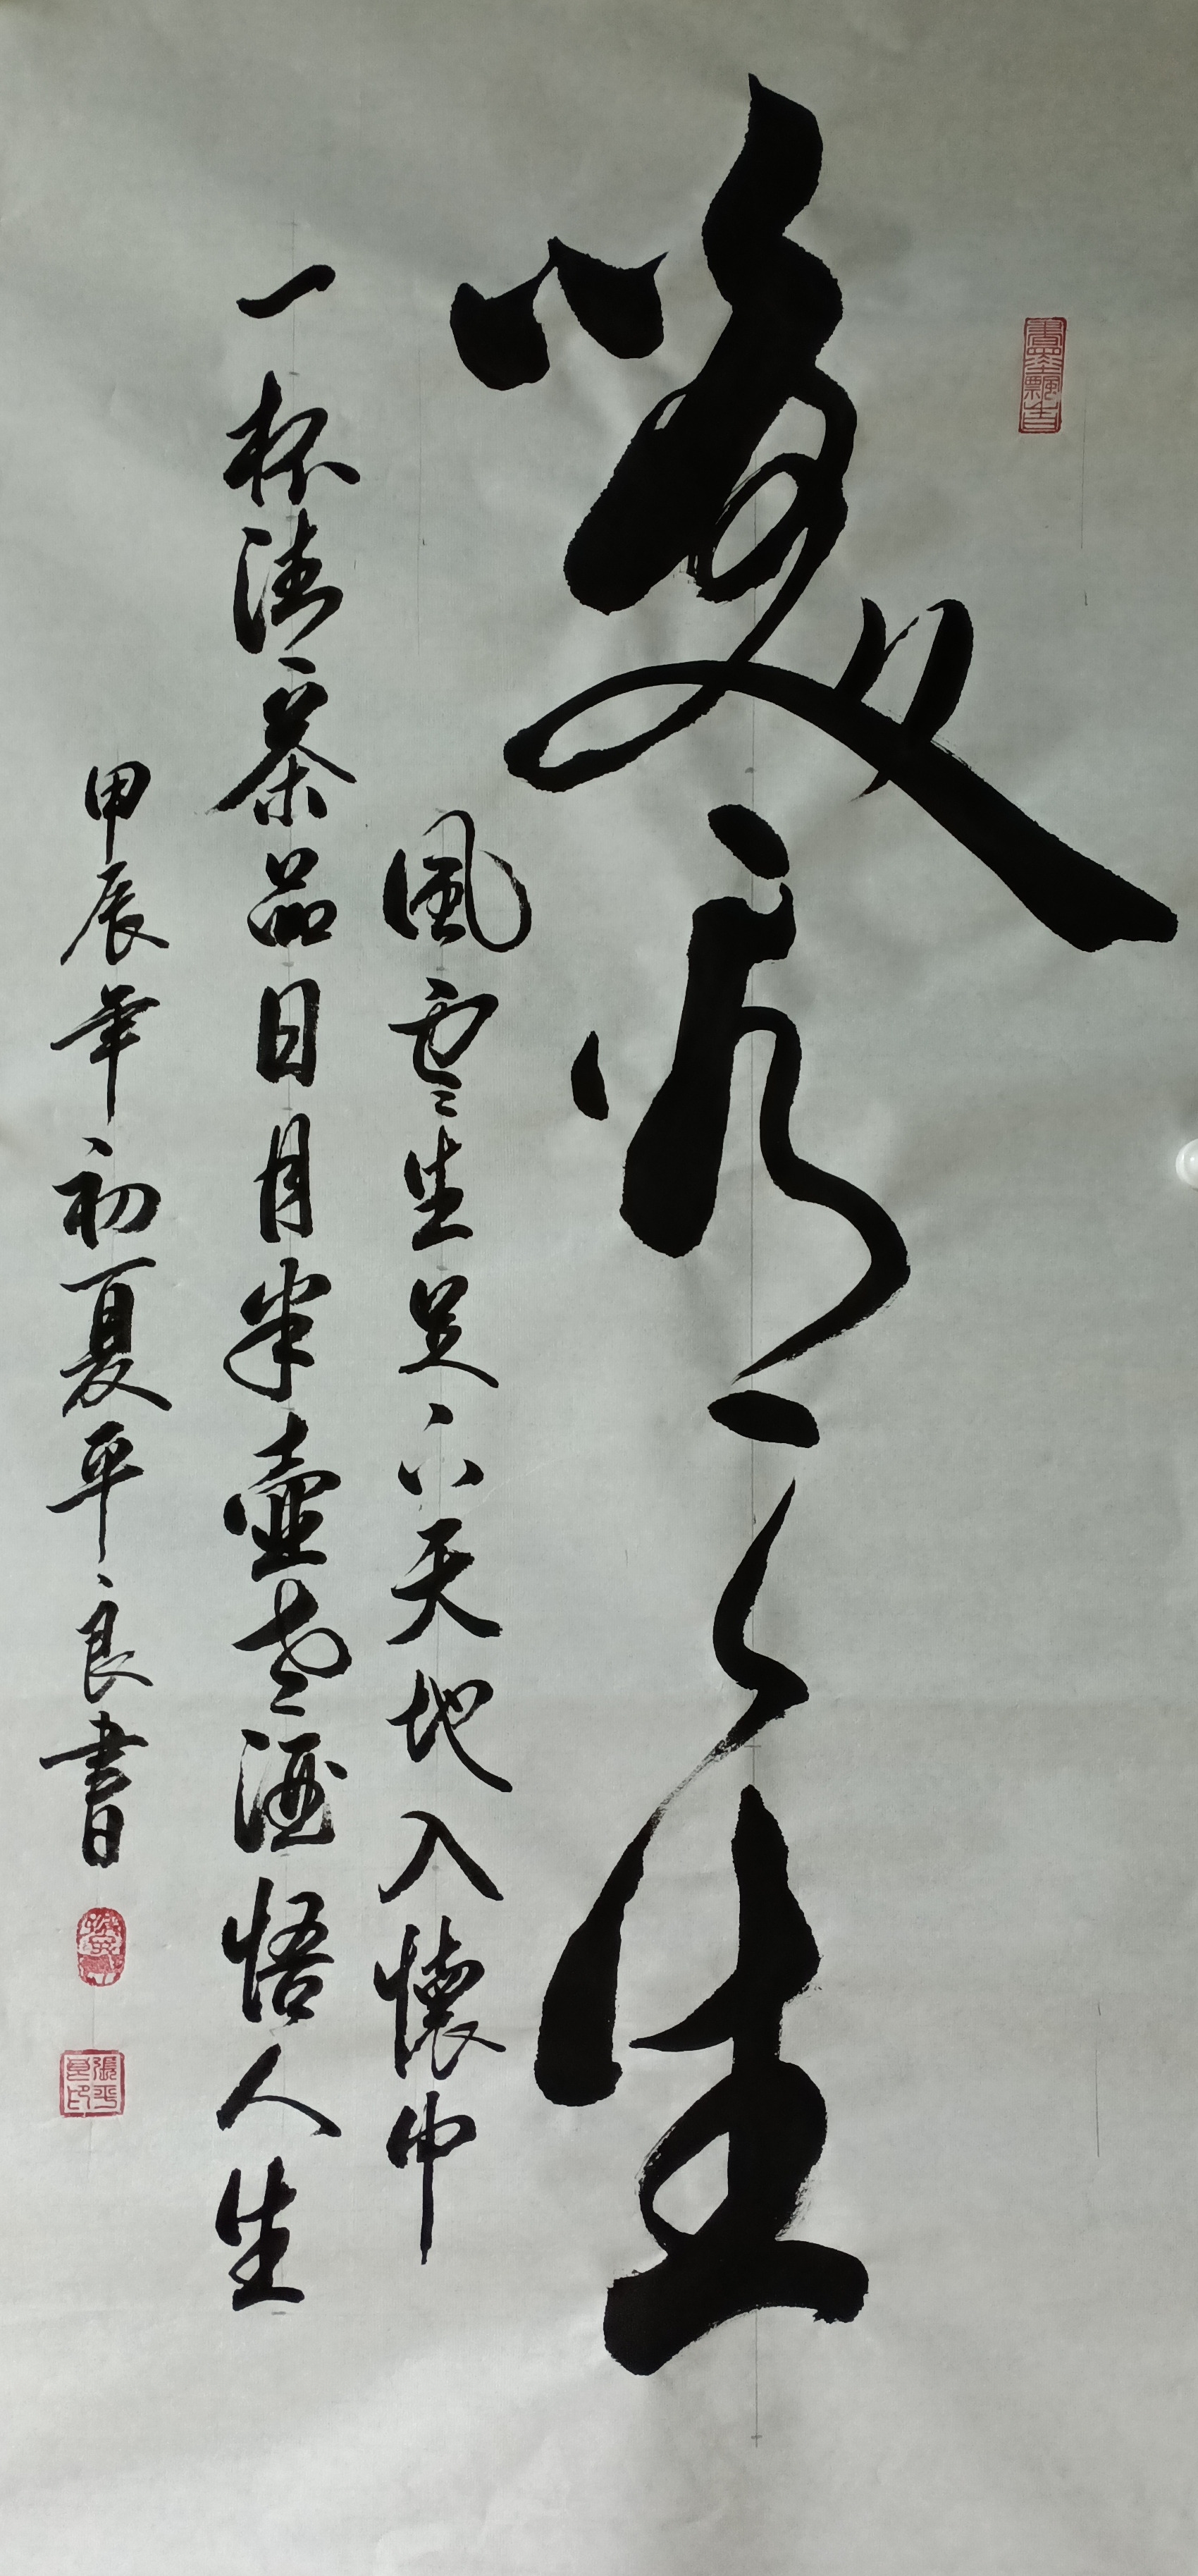 生
風雲生足下天地入懷中
一杯清茶品日月半壺老酒悟人生
甲辰年初夏平良書
張平良印